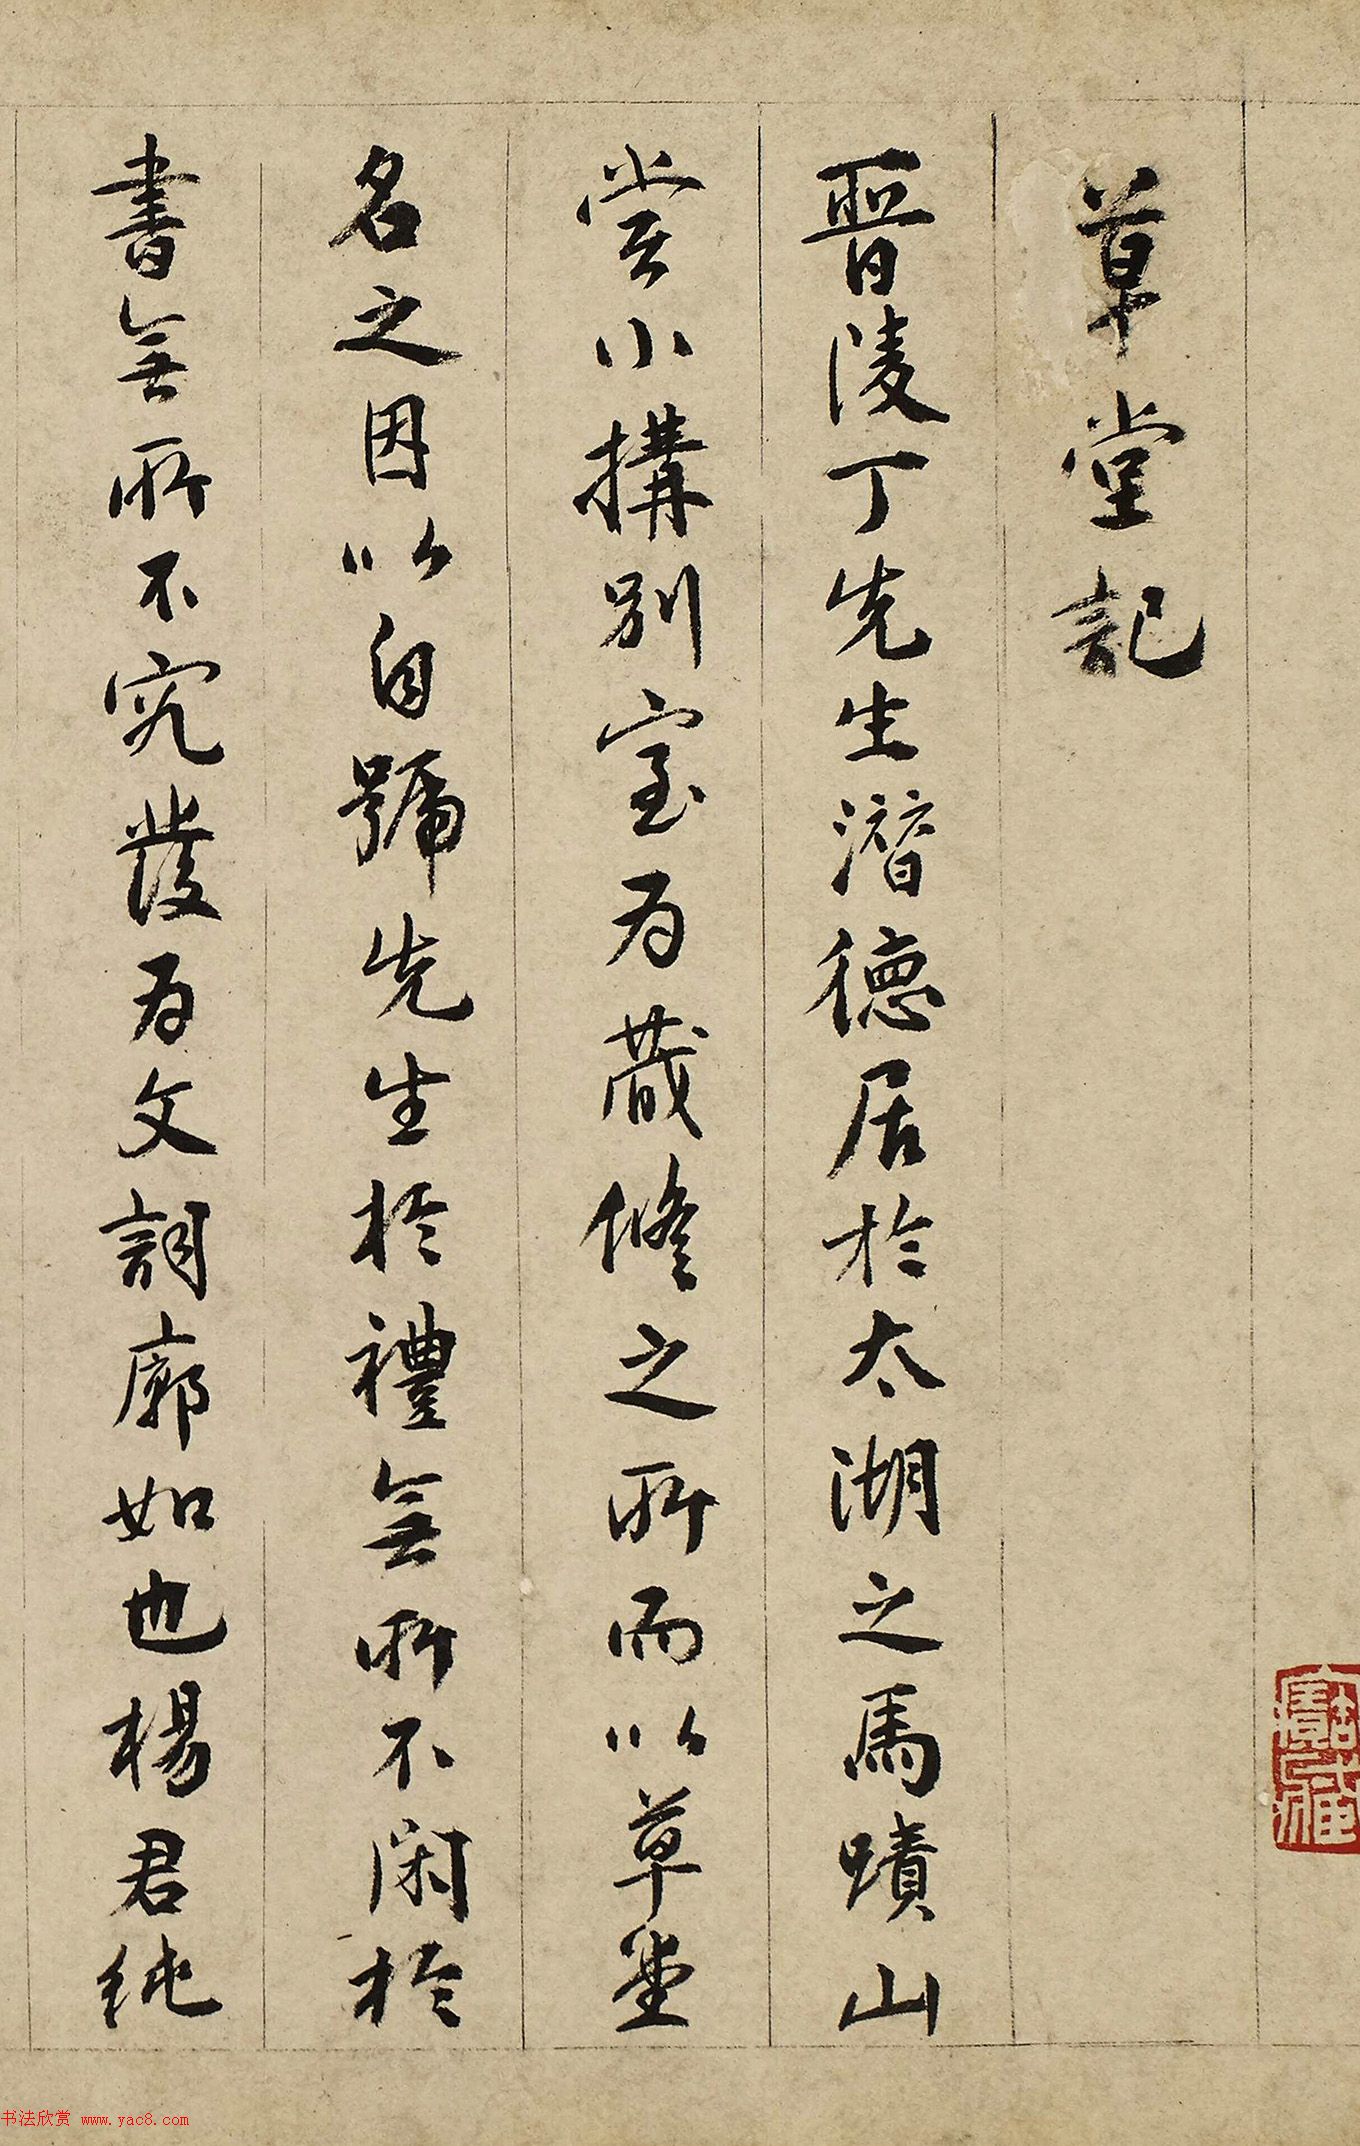 草堂記
晉陵丁先生潛德居於太湖之馬蹟山
嘗小搆別室為蔵脩之所而以草堂
名之因以自號先生於禮無所不閑於
書無所不究發為文詞廓如也楊君純
书法欣赏 www.yac8.com